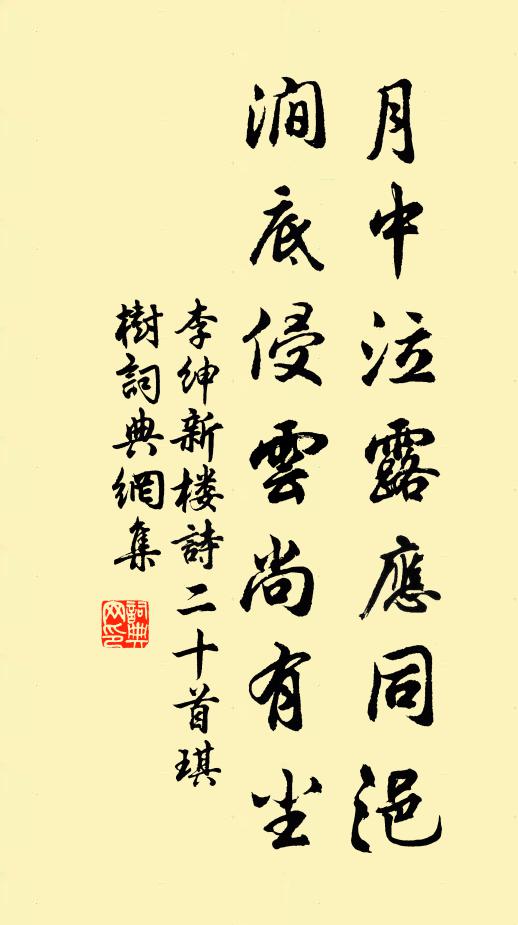 月中泣露應同浥
澗底侵雲尚有尘
李紳新楼詩二十首琪
樹詞典網集
詞典
网印